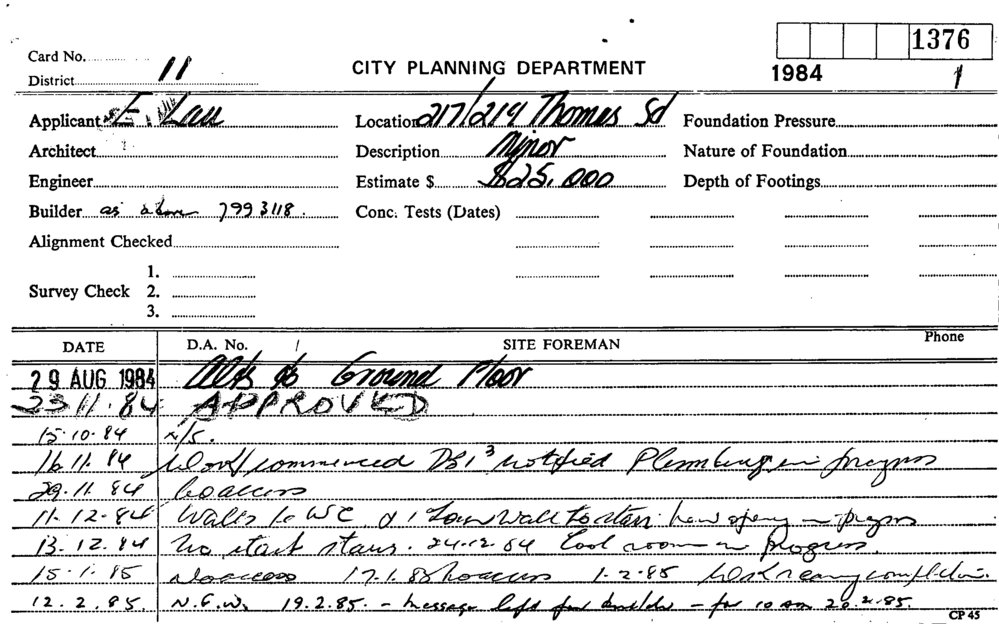 1376
Card No.
District 11
CITY PLANNING DEPARTMENT
1984 1
Applicant E. Lau Location 217/219 Thomas Sd Foundation Pressure
Architect Description Minor Nature of Foundation
Engineer Estimate $ $25,000 Depth of Footings
Builder as above 7993118. Conc. Tests (Dates)
Alignment Checked
1.
Survey Check 2.
3.
DATE D.A. No. SITE FOREMAN Phone
29 AUG 1984 Alts to Ground Floor
23.11.84 APPROVED
15.10.84 N/S.
16.11.84 Work commenced notified Plumbing in progress
29.11.84 No access
11.12.84 Walls to WC & 1 wall to stairs. new opening in progress
13.12.84 No start stairs. 24.12.84 Cool room in Progress.
15.1.85 No access 17.1.85 No access 1.2.85 Work nearing completion.
12.2.85. N.F.W. 19.2.85. - message left for builder - for 10 am 20.2.85.
CP 45